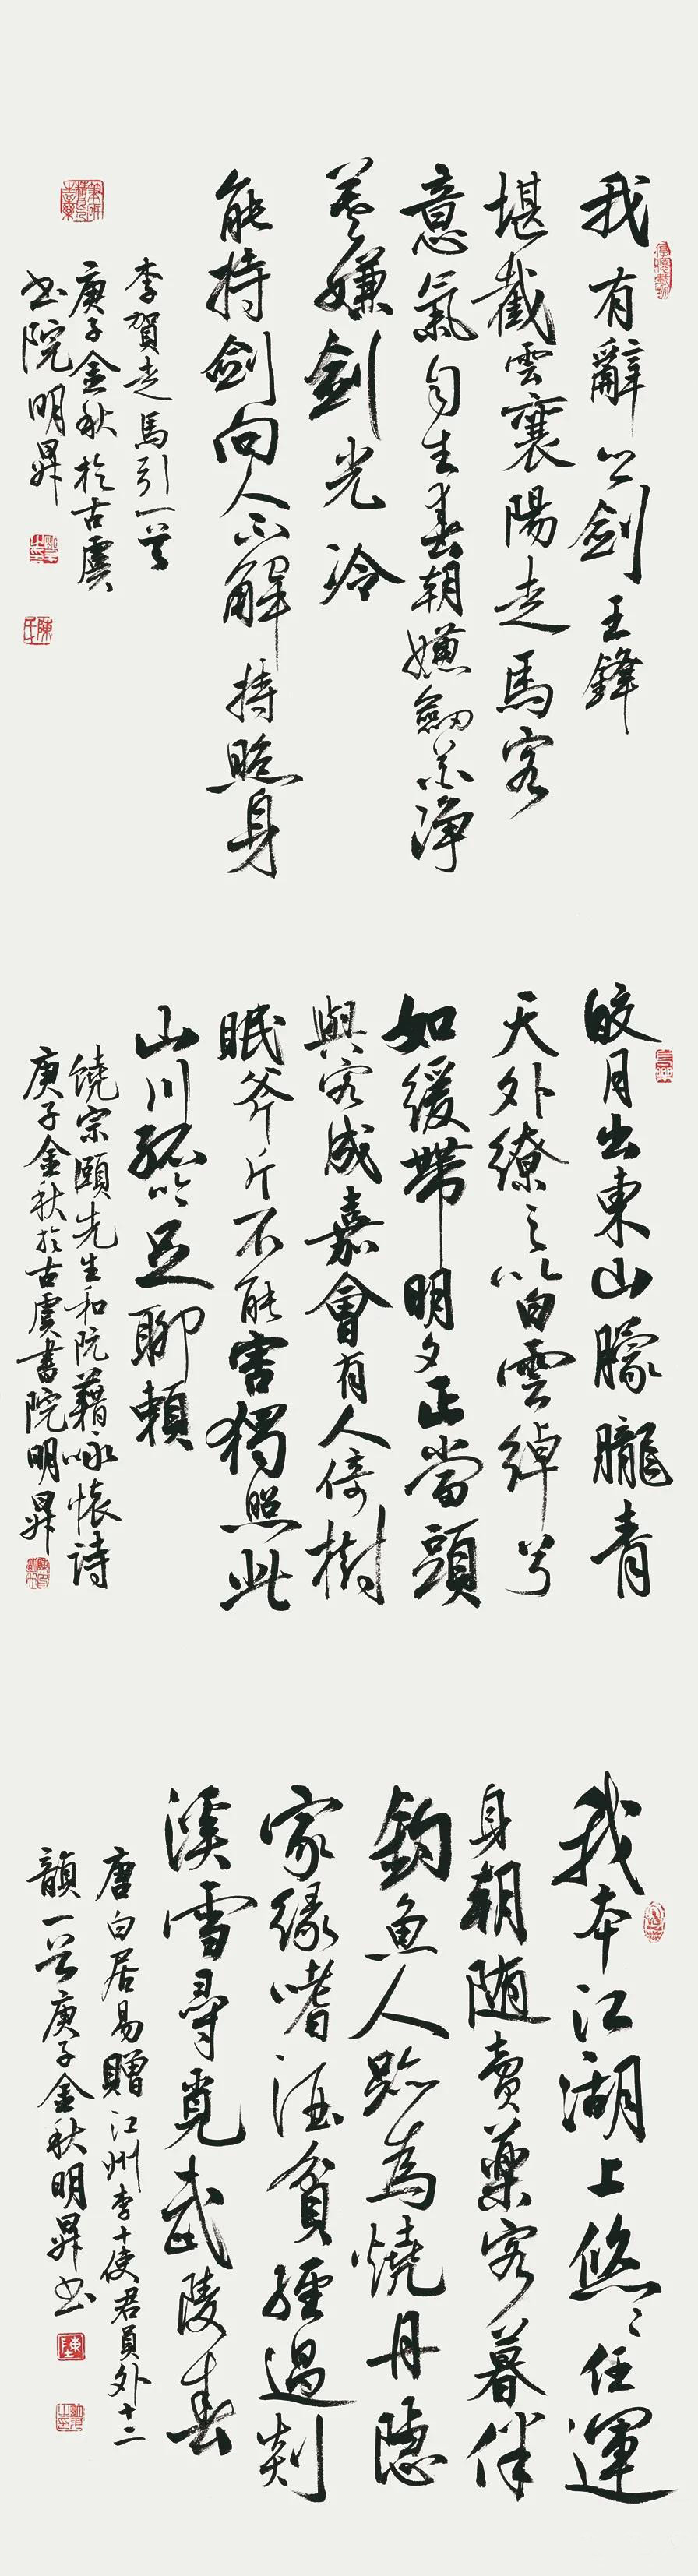 我有辭心劍玉鋒
堪截雲襄陽走馬客
意氣自生春朝嫌劔花淨
暮嫌劍光冷
能持劍向人不解持照身
李賀走馬引一首
庚子金秋於古虞
书院明昇
皎月出東山朦朧青
天外繚之以白雲綽兮
如緩帶明夕正當頭
與客成嘉會有人倚樹
眠斧斤不能害獨照此
山川孤吟足聊賴
饒宗頤先生和阮藉咏懷詩
庚子金秋於古虞書院明昇
我本江湖上悠〻任運
身朝随賣藥客暮伴
釣魚人跡為燒丹隱
家緣嗜酒貧經過剡
溪雪尋覓武陵春
唐白居易贈江州李十使君員外十二
韻一首庚子金秋明昇书